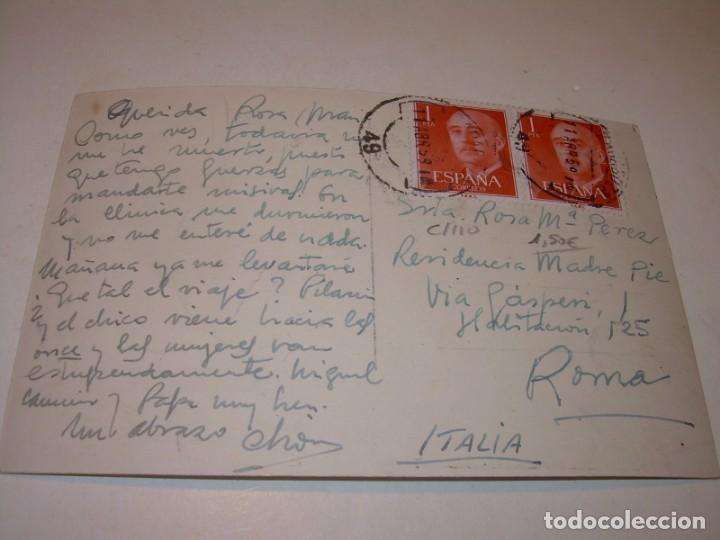 Querida Rosa Mari
Como ves, todavía no
me he muerto, puesto
que tengo fuerzas para
mandarte misivas. En
la clínica me durmieron
y no me enteré de nada.
Mañana ya me levantaré
¿Que tal el viaje? Pilarín
y el chico viene hacia las
once y las mujeres van
estupendamente. Miguel
y Papa muy bien.
Un abrazo
1 PTA
ESPAÑA
CORREOS
1 PTA
ESPAÑA
49
49
Srta. Rosa Mª Perez
1,50€
Residencia Madre Pie
Via Gásperi, 1
Habitación, 525
Roma
ITALIA
todocoleccion.net